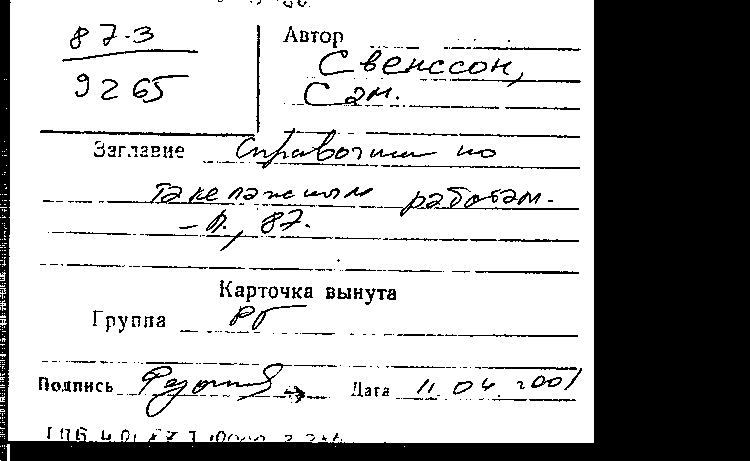 87-3
9265
Автор
Свенссон,
Сэм.
Заглавие Справочник по
такелажным работам.
- Л., 87.
Карточка вынута
Группа РГ
Подпись
Дата 11.04.2001